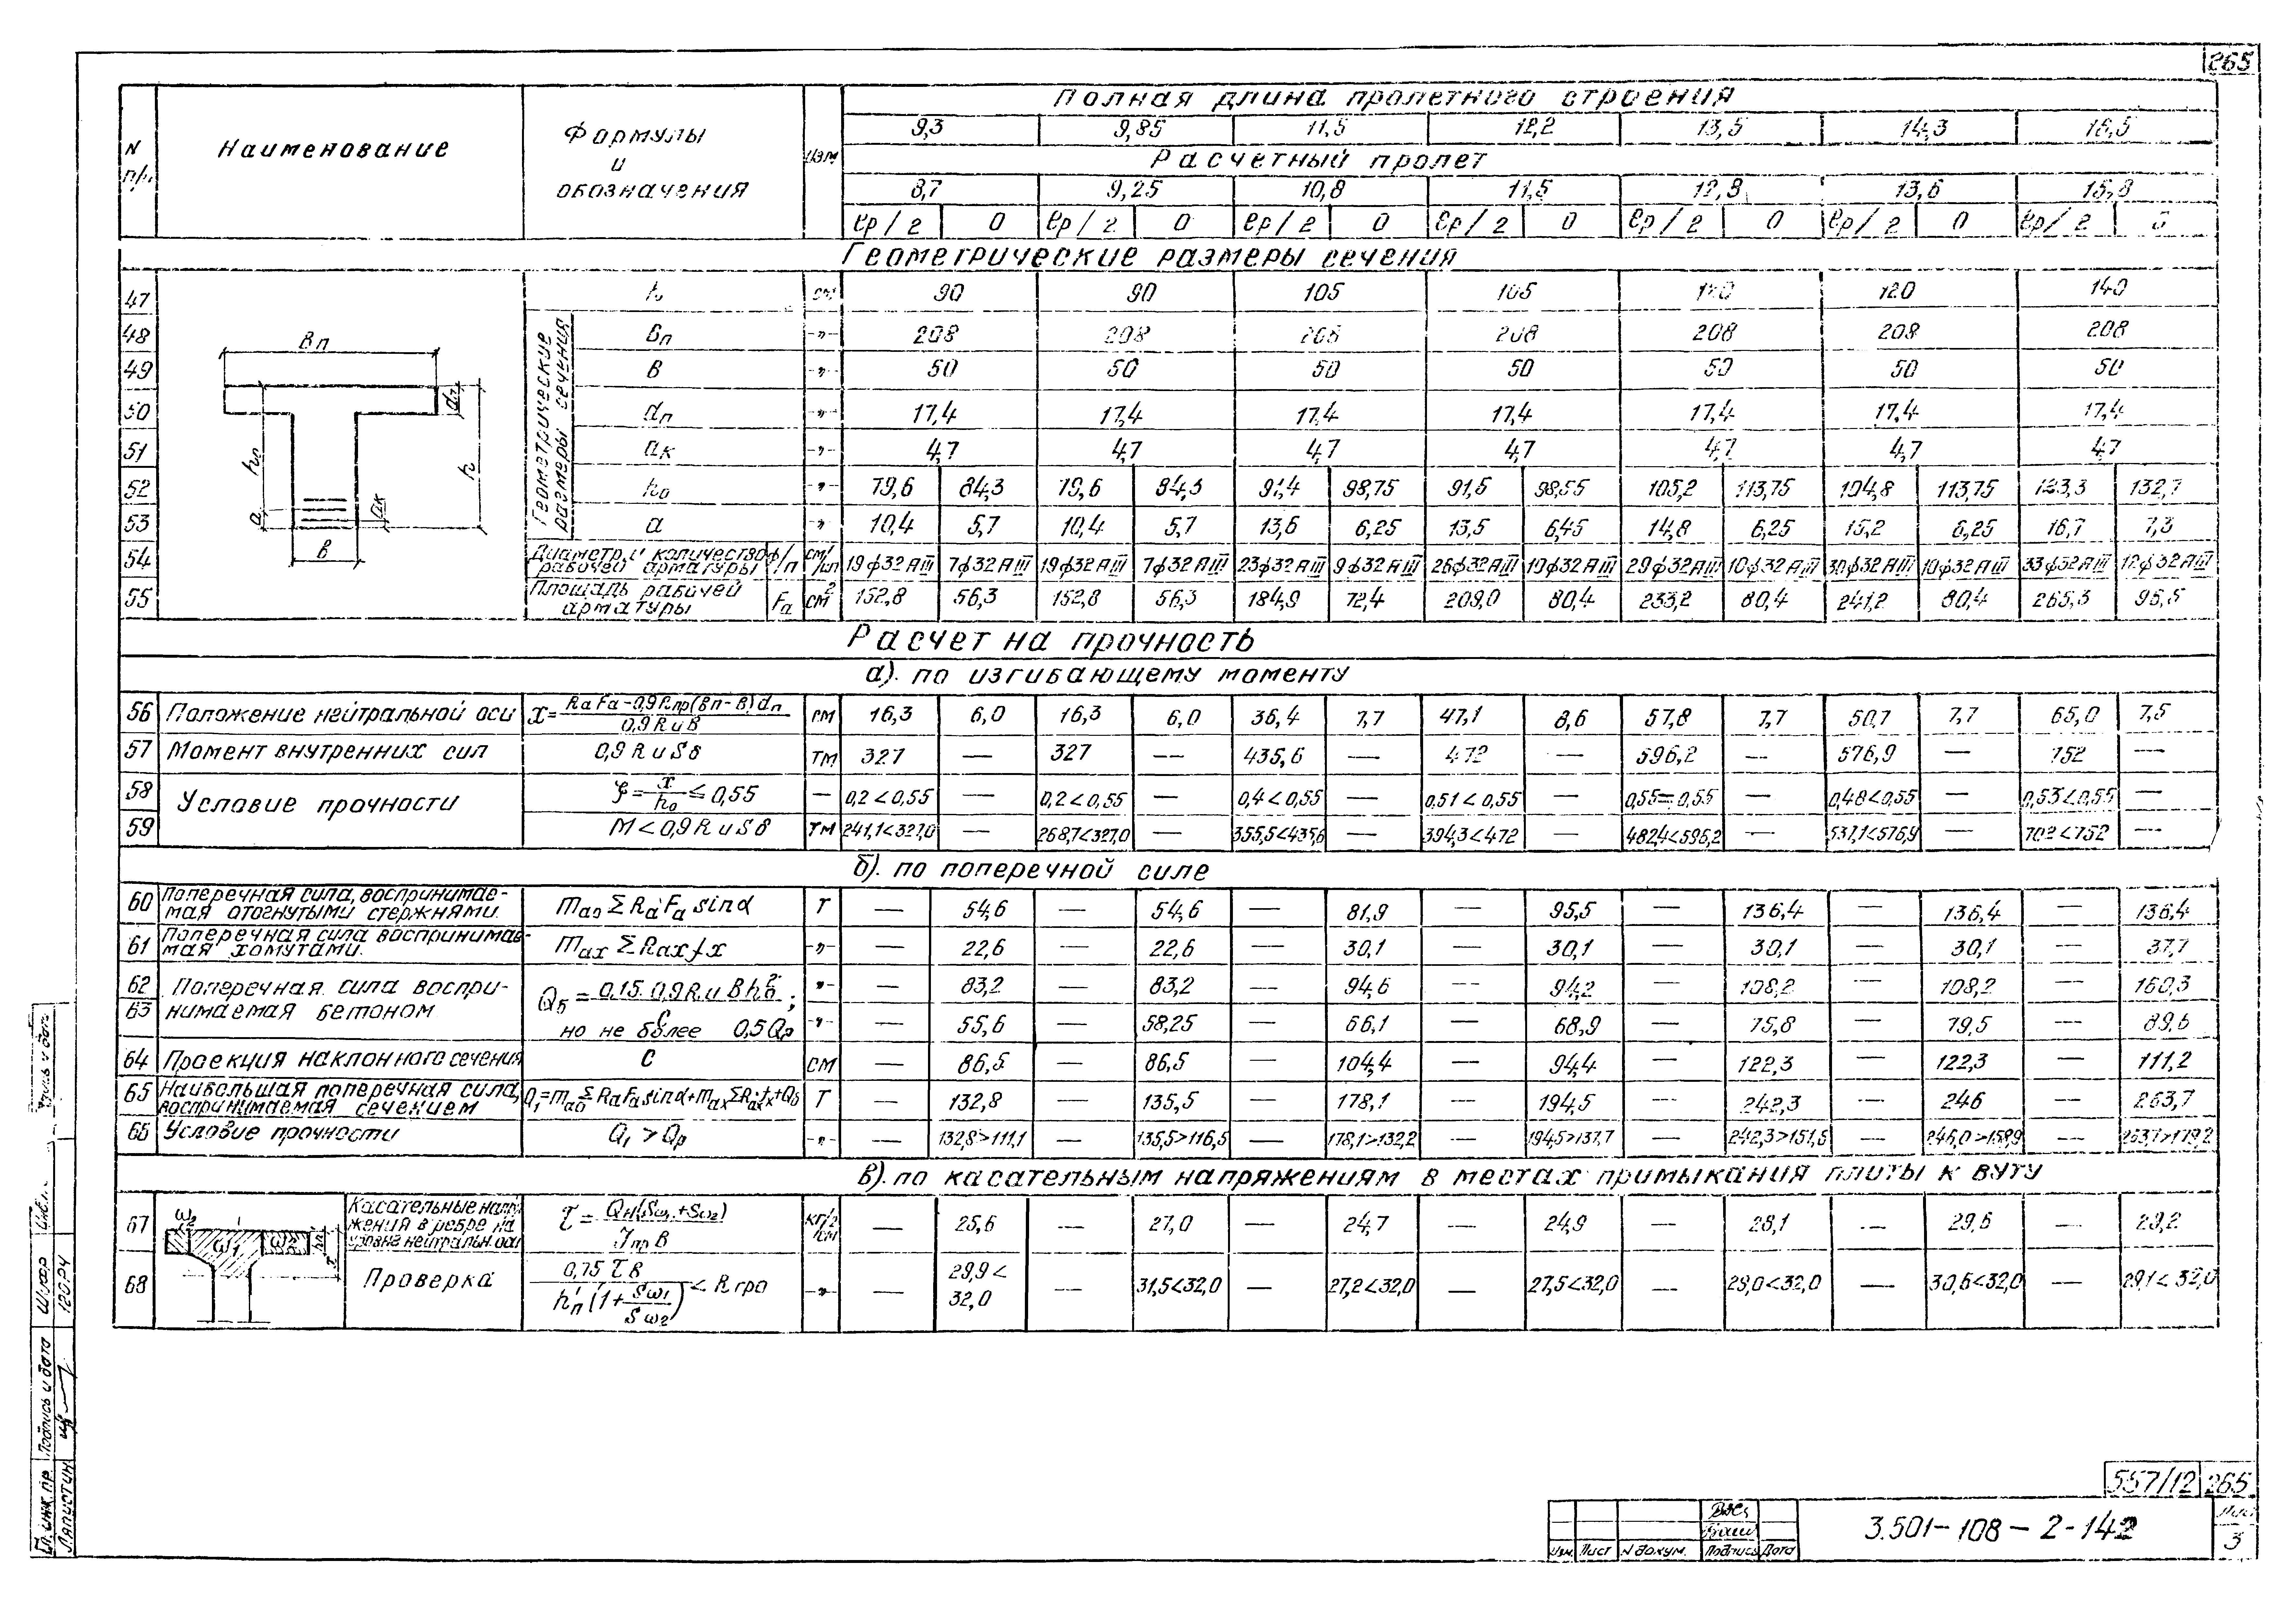 265
N п/п Наименование Формулы и обозначения Изм Полная длина пролетного строения
9,3 9,85 11,5 12,2 13,5 14,3 16,5
Расчетный пролет
8,7 9,25 10,8 11,5 12,8 13,6 15,8
ℓр/2 0 ℓр/2 0 ℓр/2 0 ℓр/2 0 ℓр/2 0 ℓр/2 0 ℓр/2 0
Геометрические размеры сечения
Геометрические размеры сечения
47 h см 90 90 105 105 120 120 140
48 вп -"- 208 208 208 208 208 208 208
49 в -"- 50 50 50 50 50 50 50
50 dп -"- 17,4 17,4 17,4 17,4 17,4 17,4 17,4
51 ак -"- 4,7 4,7 4,7 4,7 4,7 4,7 4,7
52 h₀ -"- 79,6 84,3 79,6 84,3 91,4 98,75 91,5 98,55 105,2 113,75 104,8 113,75 123,3 132,7
53 а -"- 10,4 5,7 10,4 5,7 13,6 6,25 13,5 6,45 14,8 6,25 15,2 6,25 16,7 7,3
54 Диаметр и количество рабочей арматуры ф/п см/шт 19ф32АIII 7ф32АIII 19ф32АIII 7ф32АIII 23ф32АIII 9ф32АIII 26ф32АIII 10ф32АIII 29ф32АIII 10ф32АIII 30ф32АIII 10ф32АIII 33ф32АIII 12ф32АIII
55 Площадь рабочей арматуры Fа см² 152,8 56,3 152,8 56,3 184,9 72,4 209,0 80,4 233,2 80,4 241,2 80,4 265,3 96,5
вп dп hп h ак а в
Расчет на прочность
а). по изгибающему моменту
56 Положение нейтральной оси x=(RаFа-0,9Rпр(вп-в)dп)/(0,9Rив) см 16,3 6,0 16,3 6,0 36,4 7,7 47,1 8,6 57,8 7,7 50,7 7,7 65,0 7,5
57 Момент внутренних сил 0,9RиSб тм 327 — 327 — 435,6 — 472 — 596,2 — 576,9 — 752 —
58 Условие прочности ξ=x/h₀≤0,55 — 0,2<0,55 — 0,2<0,55 — 0,4<0,55 — 0,51<0,55 — 0,55=0,55 — 0,48<0,55 — 0,53<0,55 —
59 М<0,9RиSб тм 241,1<327,0 — 268,7<327,0 — 355,5<435,6 — 394,3<472 — 482,4<596,2 — 537,1<576,9 — 702<752 —
б). по поперечной силе
60 Поперечная сила, воспринимаемая отогнутыми стержнями. mао ΣRаFа sinα Т — 54,6 — 54,6 — 81,9 — 95,5 — 136,4 — 136,4 — 136,4
61 Поперечная сила воспринимаемая хомутами. mах ΣRах fх -"- — 22,6 — 22,6 — 30,1 — 30,1 — 30,1 — 30,1 — 37,7
62 Поперечная сила воспринимаемая бетоном Qб=(0,15·0,9Rивh₀²)/с; -"- — 83,2 — 83,2 — 94,6 — 94,2 — 108,2 — 108,2 — 160,3
63 но не более 0,5Qр -"- — 55,6 — 58,25 — 66,1 — 68,9 — 75,8 — 79,5 — 89,6
64 Проекция наклонного сечения с см — 86,5 — 86,5 — 104,4 — 94,4 — 122,3 — 122,3 — 111,2
65 Наибольшая поперечная сила, воспринимаемая сечением Q₁=mаоΣRаFаsinα+mахΣRахfх+Qб Т — 132,8 — 135,5 — 178,1 — 194,5 — 242,3 — 246 — 263,7
66 Условие прочности Q₁>Qр -"- — 132,8>111,1 — 135,5>116,5 — 178,1>132,2 — 194,5>137,7 — 242,3>151,6 — 246,0>158,9 — 263,7>179,2
в). по касательным напряжениям в местах примыкания плиты к вуту
67 Касательные напряжения в ребре на уровне нейтральн. оси τ=Qн(Sω₁+Sω₂)/(Jпр в) кг/см² — 25,6 — 27,0 — 24,7 — 24,9 — 28,1 — 29,6 — 29,2
68 Проверка 0,75τв/(h'п(1+Sω₁/Sω₂))<Rгро -"- — 29,9<32,0 — 31,5<32,0 — 27,2<32,0 — 27,5<32,0 — 29,0<32,0 — 30,6<32,0 — 29,1<32,0
ω₂ ω₁ ω₂ h'п x
557/12 265
3.501-108-2-142
Лист 3
Изм. Лист N докум. Подпись Дата
Гл. инж. пр. Подпись и дата Шифр
Лапустин 120РЧ